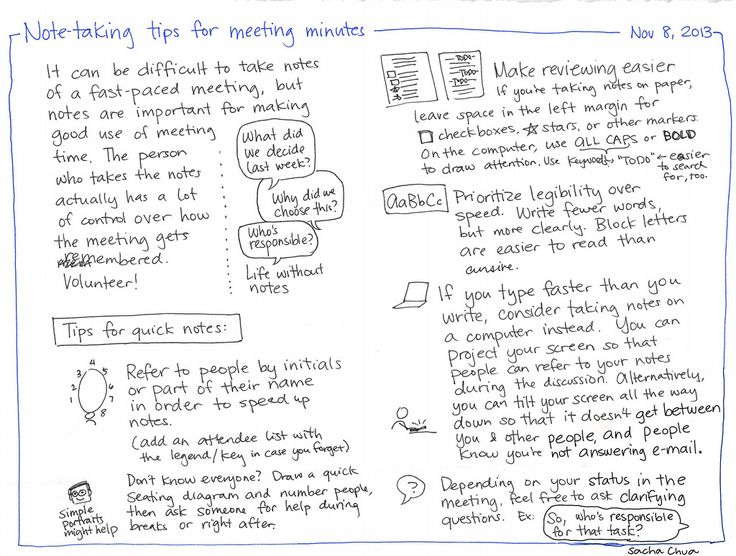 Note-taking tips for meeting minutes
Nov 8, 2013
It can be difficult to take notes
of a fast-paced meeting, but
notes are important for making
good use of meeting
time. The person
who takes the notes
actually has a lot
of control over how
the meeting gets
remembered.
Volunteer!
What did
we decide
last week?
Why did we
choose this?
Who's
responsible?
Life without
notes
Tips for quick notes:
1 2 3 4 5 6 7 8
Refer to people by initials
or part of their name
in order to speed up
notes.
(add an attendee list with
the legend/key in case you forget)
simple
portraits
might help
Don't know everyone? Draw a quick
seating diagram and number people,
then ask someone for help during
breaks or right after.
TODO-
TODO-
TODO-
Make reviewing easier
If you're taking notes on paper,
leave space in the left margin for
checkboxes, stars, or other markers.
On the computer, use ALL CAPS or BOLD
to draw attention. Use keywords "TODO" ← easier
to search
for, too.
AaBbCc
Prioritize legibility over
speed. Write fewer words,
but more clearly. Block letters
are easier to read than
cursive.
If you type faster than you
write, consider taking notes on
a computer instead. You can
project your screen so that
people can refer to your notes
during the discussion. Alternatively,
you can tilt your screen all the way
down so that it doesn't get between
you & other people, and people
know you're not answering e-mail.
?
Depending on your status in the
meeting, feel free to ask clarifying
questions. Ex:
So, who's responsible
for that task?
Sacha Chua